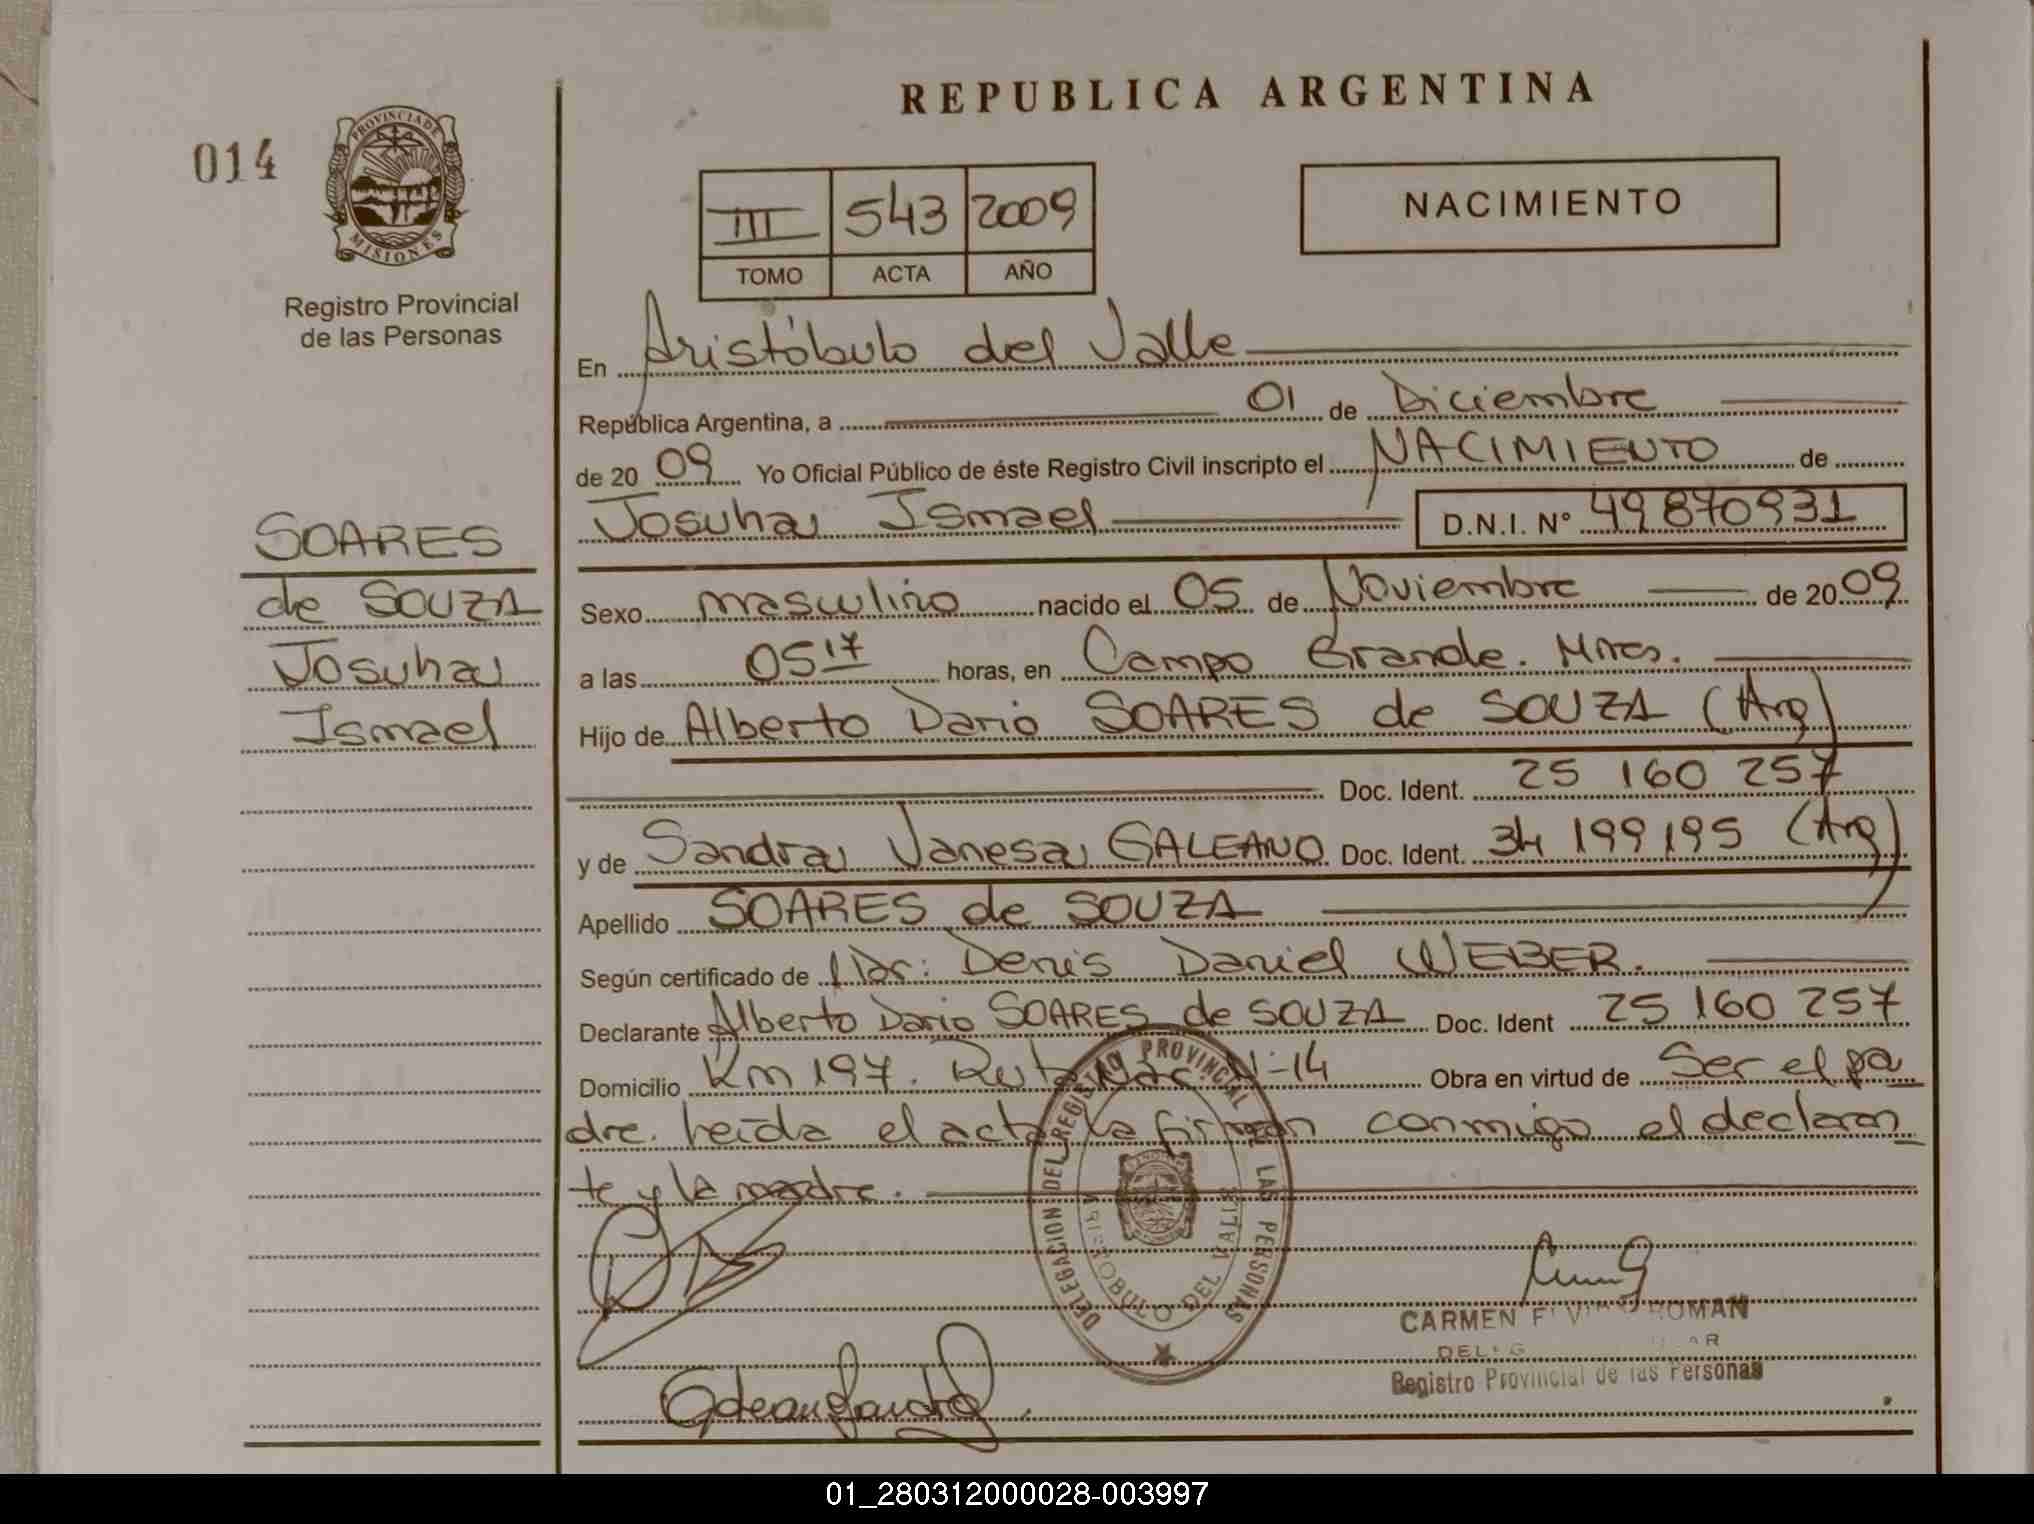 REPUBLICA ARGENTINA
014
PROVINCIA DE MISIONES
Registro Provincial
de las Personas
III 543 2009
TOMO ACTA AÑO
NACIMIENTO
En Aristóbulo del Valle
República Argentina, a 01 de Diciembre
de 20 09 Yo Oficial Público de éste Registro Civil inscripto el NACIMIENTO de
Josuha Ismael D.N.I. N° 49870931
SOARES
de SOUZA
Josuha
Ismael
Sexo masculino nacido el 05 de Noviembre de 20 09
a las 05 17 horas, en Campo Grande. Mnes.
Hijo de Alberto Dario SOARES de SOUZA (Arg)
Doc. Ident. 25 160 257
y de Sandra Vanesa GALEANO Doc. Ident. 34 199 195 (Arg)
Apellido SOARES de SOUZA
Según certificado de Dr: Denis Daniel WEBER.
Declarante Alberto Dario SOARES de SOUZA Doc. Ident 25 160 257
Domicilio Km 197. Ruta Nac N-14 Obra en virtud de Ser el pa
dre. Leída el acta la firman conmigo el declaran
te y la madre.
DELEGACION DEL REGISTRO PROVINCIAL DE LAS PERSONAS
ARISTOBULO DEL VALLE
CARMEN ROMAN
Registro Provincial de las Personas
01_280312000028-003997